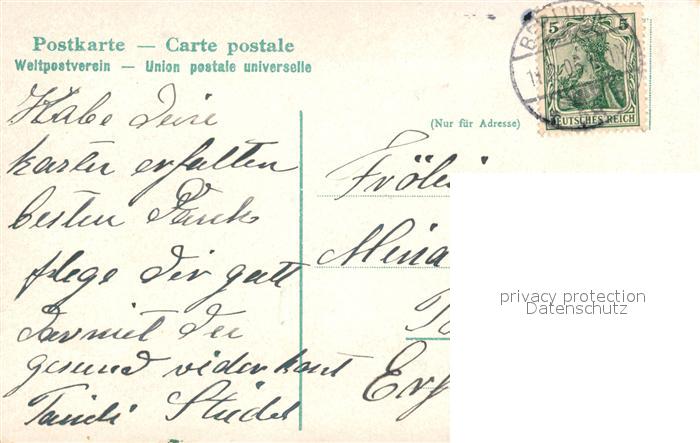 Postkarte — Carte postale
Weltpostverein — Union postale universelle
(Nur für Adresse)
5 5
DEUTSCHES REICH
Habe deine
karten erhalten
besten Dank
flege dir gutt
darmit du
gesund wider komst
Tandi Stüdel
Frölei
Mina
privacy protection
Datenschutz